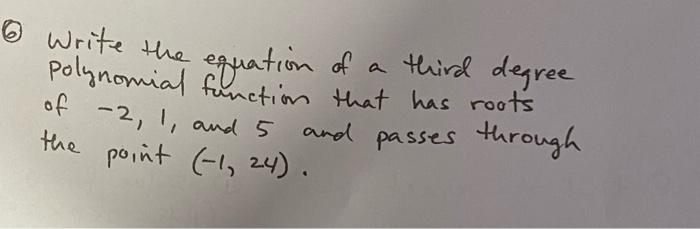 ⑥ Write the equation of a third degree
polynomial function that has roots
of -2, 1, and 5 and passes through
the point (-1, 24).